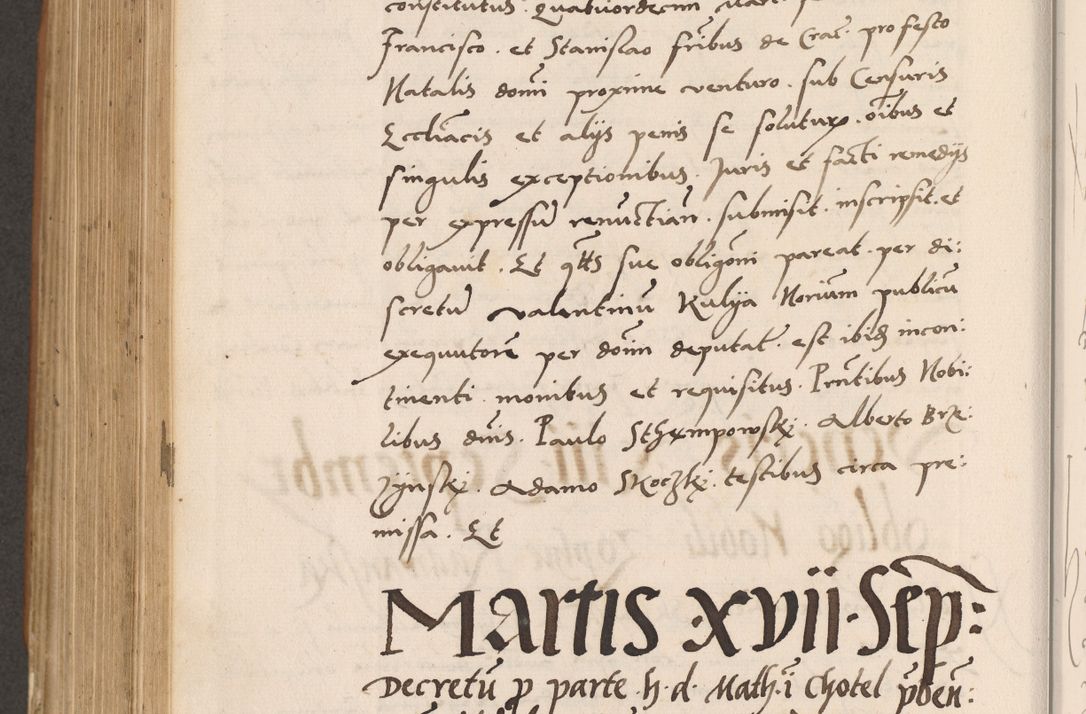 constitutus. Quatuordecim Mart.
Francisco. et Stanislao fribus de Crac. pro festo
Natalis domi proxime venturo. sub Censuris
Eccliacis et alijs penis se soluturum. oibus et
singulis exceptionibus. Juris et facti remedijs
per expressu renuctian. submisit. inscripsit. et
obligauit. Et qtts sue obligoni pareat. per di:
scretu valentinu Kulya Norium publicu
exequutore per doim deputat. est ibid incon:
tinenti. monibus et requisitus. Pntibus Nobi:
libus dnis. Paulo Sthrmpowskj. Alberto Brze:
zynskj. Adamo Skoczkj. testibus circa pre:
missa. Et
Martis xvii. Sep:
Decretu p parte. h. d. Math. i Chotel pben: